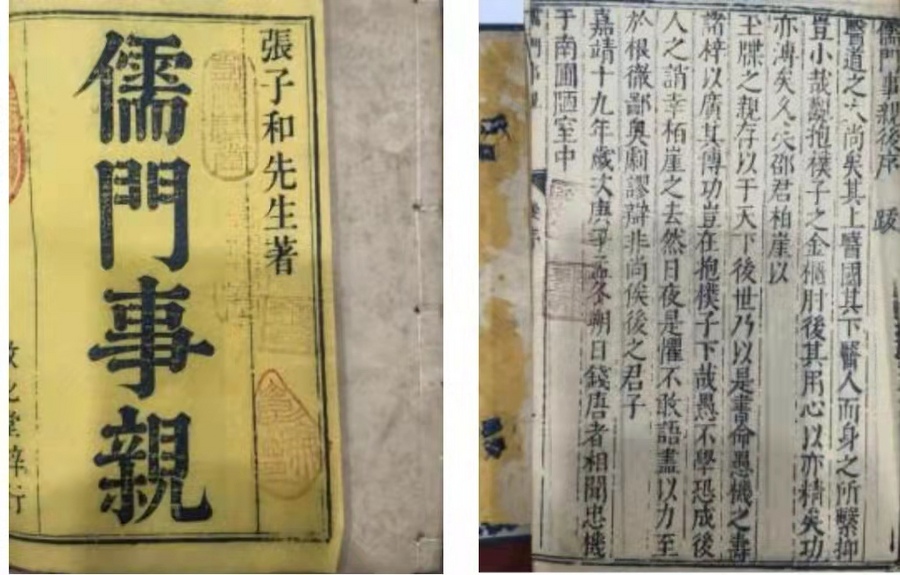 張子和先生著
儒門事親
之堂梓行
儒門事親後序 跋
醫道之大尚矣其上醫國其下醫人而身之所繫抑
豈小哉觀抱樸子之金櫃肘後其用心以亦精矣功
亦溥矣久矣邵君柏崖以
王牒之親存以于天下後世乃以是書命愚機之壽
諸梓以廣其傳功豈在抱樸子下哉愚不學恐成後
人之誚幸柏崖之去然日夜是懼不敢語盡以力至
於根微鄙奧剛謬辯非尚俟後之君子
嘉靖十九年歲次庚子孟冬朔日錢唐者相聞忠機
于南圃陋室中